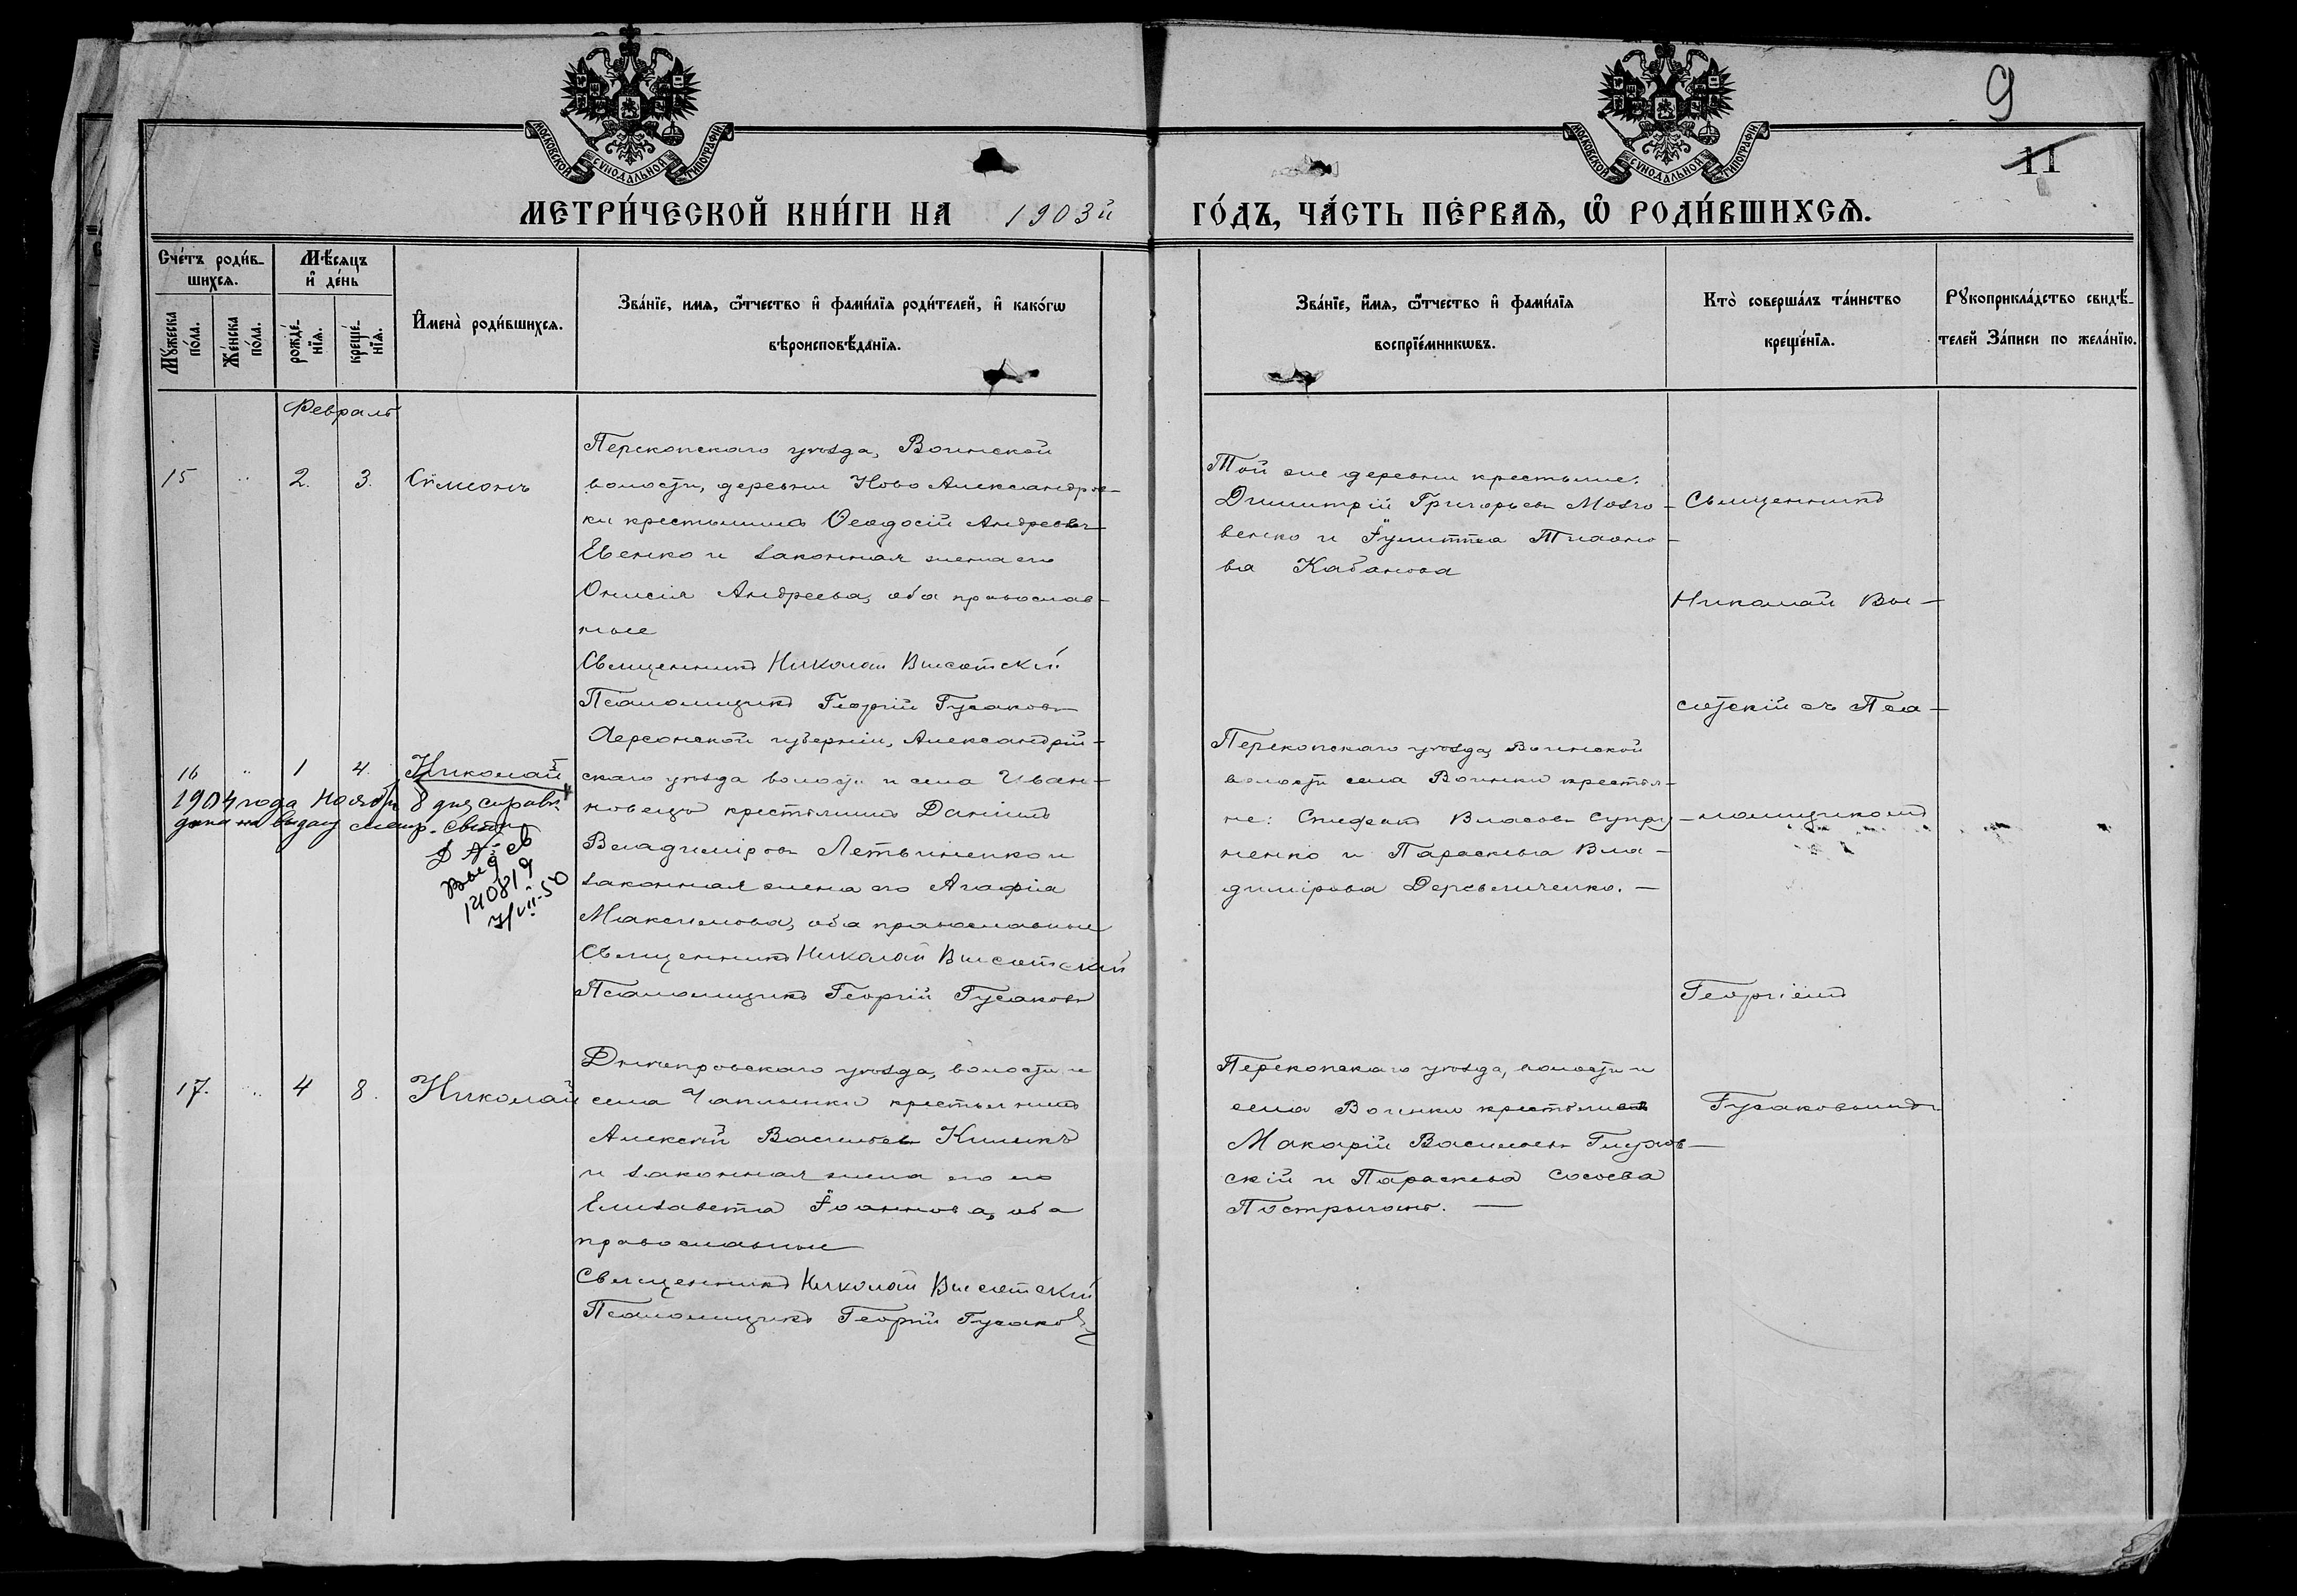 9
11
МОСКОВСКОЙ СѴНОДАЛЬНОЙ ТИПОГРАФІИ
МОСКОВСКОЙ СѴНОДАЛЬНОЙ ТИПОГРАФІИ
МЕТРИ́ЧЕСКОЙ КНИ́ГИ НА 1903й
ГО́ДЪ, ЧА́СТЬ ПЕ́РВАѦ, Ѽ РОДИ́ВШИХСѦ.
Сче́тъ роди́в-
шихсѧ.
Мꙋ́жеска
по́ла.
Же́нска
по́ла.
Мѣ́сѧцъ
и҆ де́нь
рожде́-
нїѧ.
креще́-
нїѧ.
И҆мена̀ роди́вшихсѧ.
Зва́нїе, имѧ, ѻ҆́тчество и҆ фами́лїѧ роди́телей, и҆ како́гѡ
вѣроисповѣ́данїѧ.
Зва́нїе, и҆́мѧ, ѻ҆́тчество и҆ фами́лїѧ
воспрїе́мникѡвъ.
Кто̀ соверша́лъ та́инство
креще́нїѧ.
Рꙋкоприкла́дство свидѣ́-
телей За́писи по жела́нїю.
Февраль
15 " 2. 3. Симеонъ
Перекопскаго уѣзда, Воинской
волости, деревни Ново Александров-
ки крестьянинъ Ѳеодосій Андреевъ
Евенко и законная жена его
Онисія Андреева, оба православ-
ные
Священникъ Николай Высотскій
Псаломщикъ Георгій Гусаковъ
Той же деревни крестьяне:
Димитрій Григорьевъ Мозго-
венко и Іулитта
Кабанова
16 " 1 4. Николай
1904 года Ноября 8 дня справка
дана на выдачу метр. свид.
140819
7/VII-50
Херсонской губерніи, Александрій-
скаго уѣзда волости и села Иван-
ковецъ крестьянинъ Даніилъ
Владиміровъ Летвиненко и
законная жена его Агафія
Максимова, оба православные
Священникъ Николай Высотскій
Псаломщикъ Георгій Гусаковъ
Перекопскаго уѣзда, Воинской
волости села Воинки крестья-
не: Стефанъ Власовъ Супру-
ненко и Параскева Вла-
димірова Деревянченко. —
17. " 4 8. Николай
Днѣпровскаго уѣзда, волости и
села Чаплынки крестьянинъ
Алексѣй Васильевъ
и законная жена его
Елизавета Іоаннова, оба
православные
Священникъ Николай Высотскій
Псаломщикъ Георгій Гусаковъ
Перекопскаго уѣзда, волости и
села Воинки крестьяне
Макарій Васильевъ Глухов-
скій и Параскева Сосоева
Священникъ
Николай Вы-
сотскій съ Пса-
ломщикомъ
Георгіемъ
Гусаковымъ